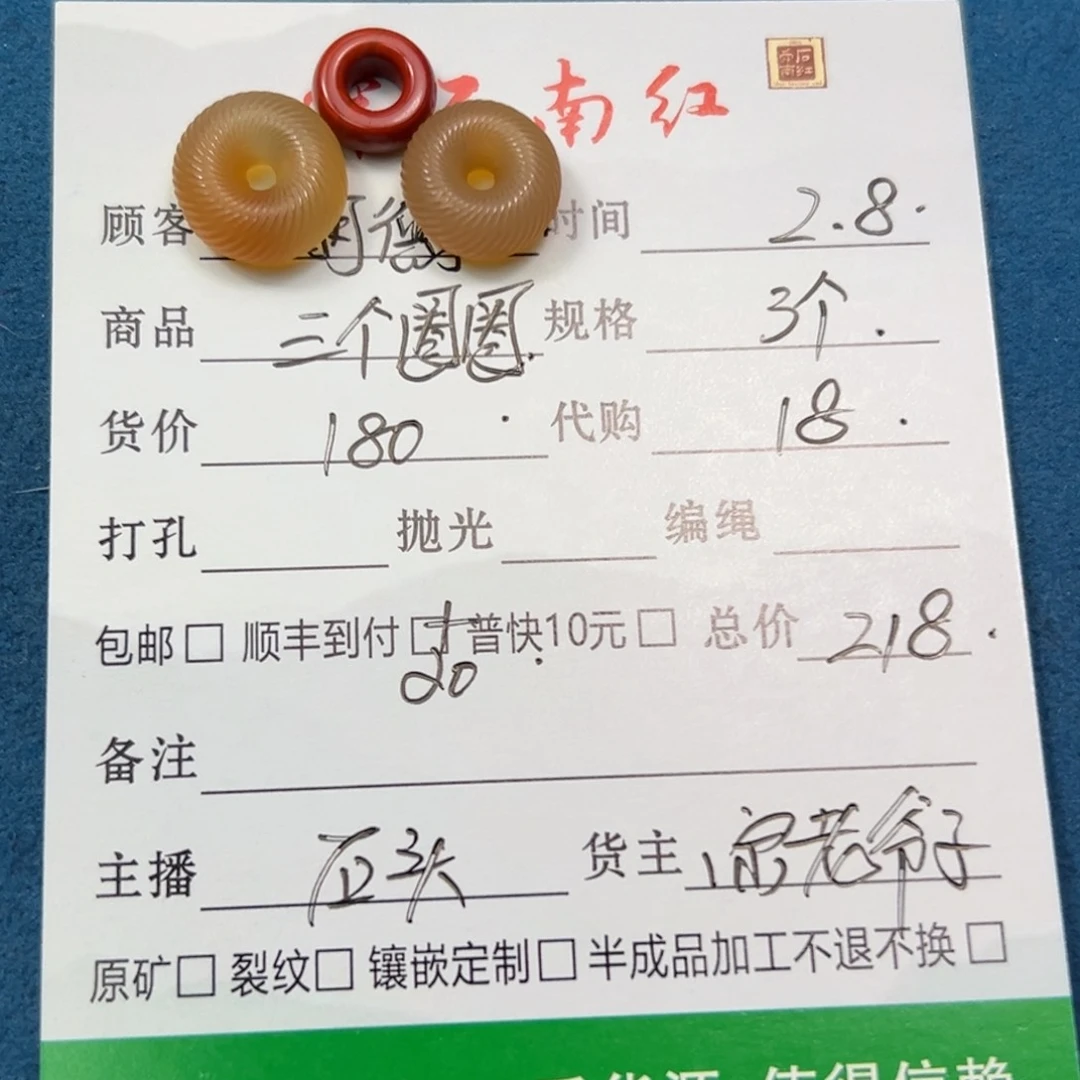 南红
顾客 时间 2.8.
商品 三个圈圈. 规格 3个.
货价 180. 代购 18.
打孔 抛光 编绳
包邮□ 顺丰到付□+20. 普快10元□ 总价 218.
备注
主播 石头 货主 宋老爷子
原矿□ 裂纹□ 镶嵌定制□ 半成品加工不退不换□
货源 值得信赖